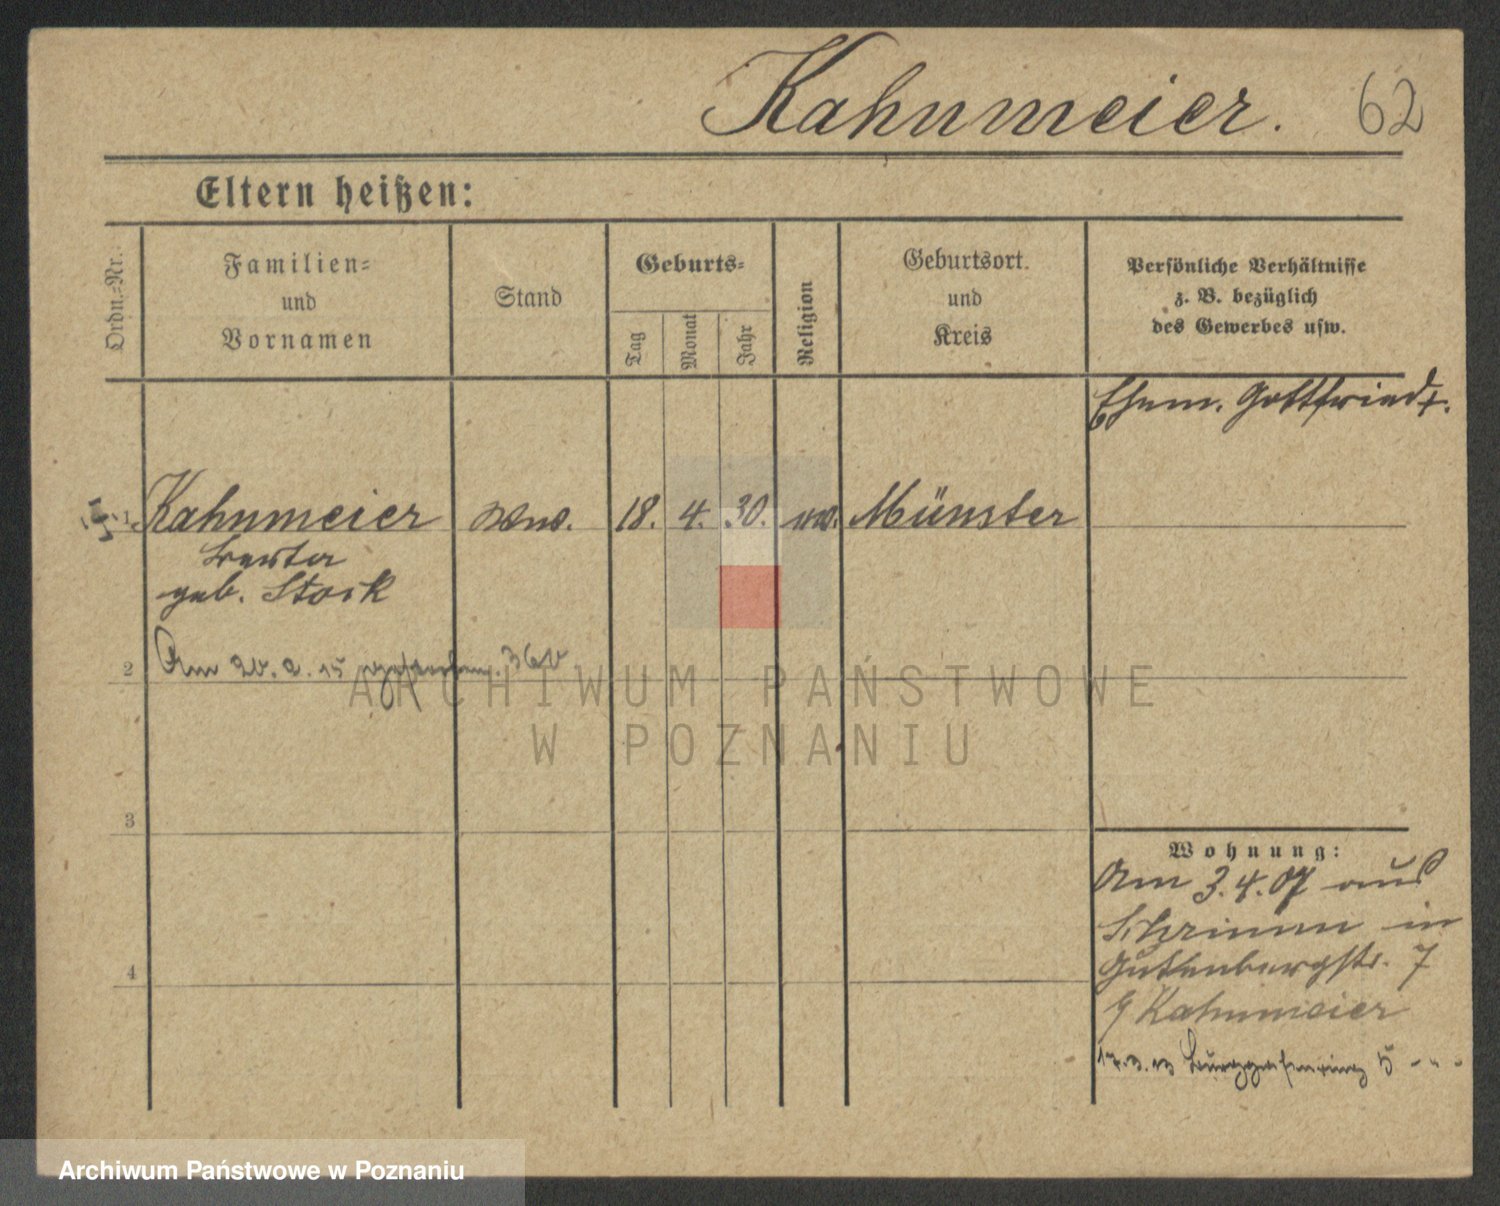 Kahnmeier. 62
Eltern heißen:
Ordn.=Nr.
Familien=
und
Vornamen
Stand
Geburts=
Tag
Monat
Jahr
Religion
Geburtsort.
und
Kreis
Persönliche Verhältnisse
z. B. bezüglich
des Gewerbes usw.
Ehem. Gottfried †.
1 Kahnmeier Wwe. 18. 4. 30. Münster
geb. Stork
2 Am 20. 2. 15 gestorben.
3
4
Wohnung:
Am 3. 4. 07 aus
Schrimm in
Gutenbergstr. 7
Kahnmeier
5
ARCHIWUM PAŃSTWOWE
W POZNANIU
Archiwum Państwowe w Poznaniu